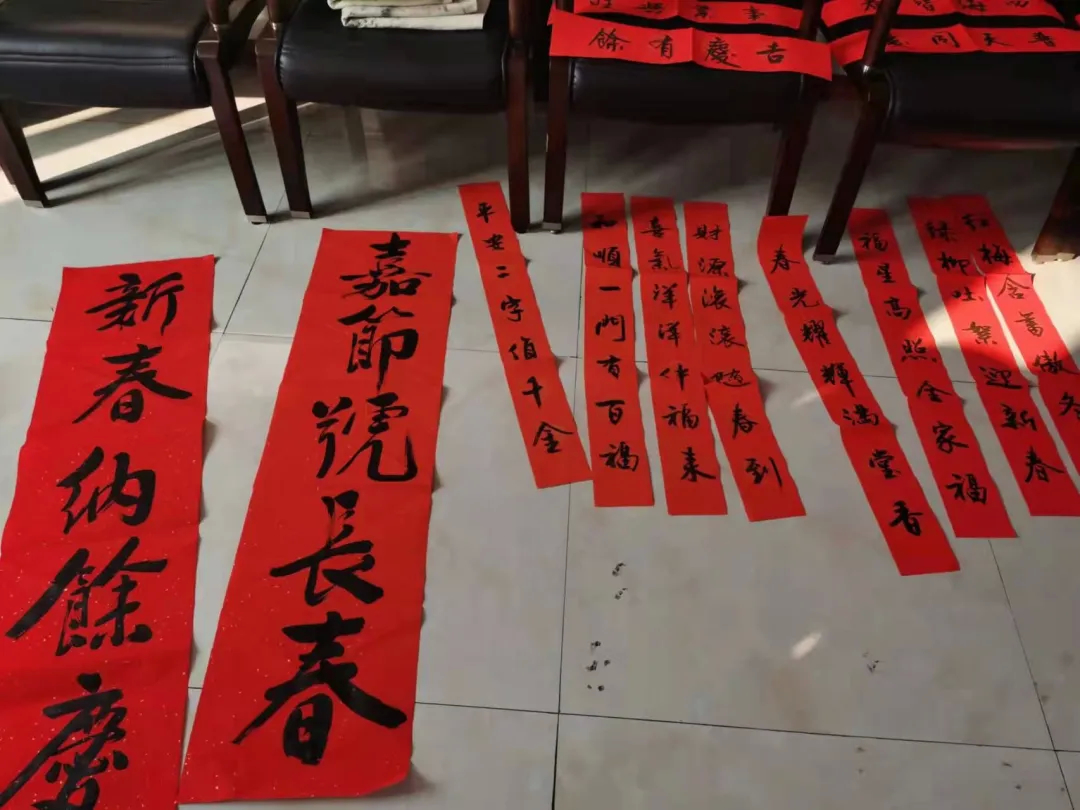 餘有慶吉
同天普
新春納餘慶
嘉節號長春
平安二字值千金
和順一門有百福
喜氣洋洋伴福來
財源滾滾隨春到
春光耀輝滿堂香
福星高照全家福
綠柳吐絮迎新春
紅梅含蓄傲冬